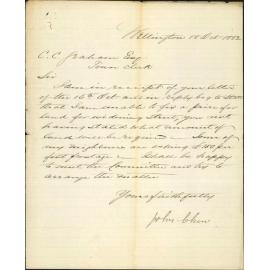 Wellington 18 Oct 1882
C. C. Graham Esq
Town Clerk
Sir
I am in receipt of your letter
of the 16th Oct and in reply beg to state
that I am unable to fix a price for
land for widening street, you not
having stated what amount of
land will be required — Some of
my neighbours are asking £ per
foot frontage — I shall be happy
to meet the Committee and try to
arrange the matter
Yours faithfully
John